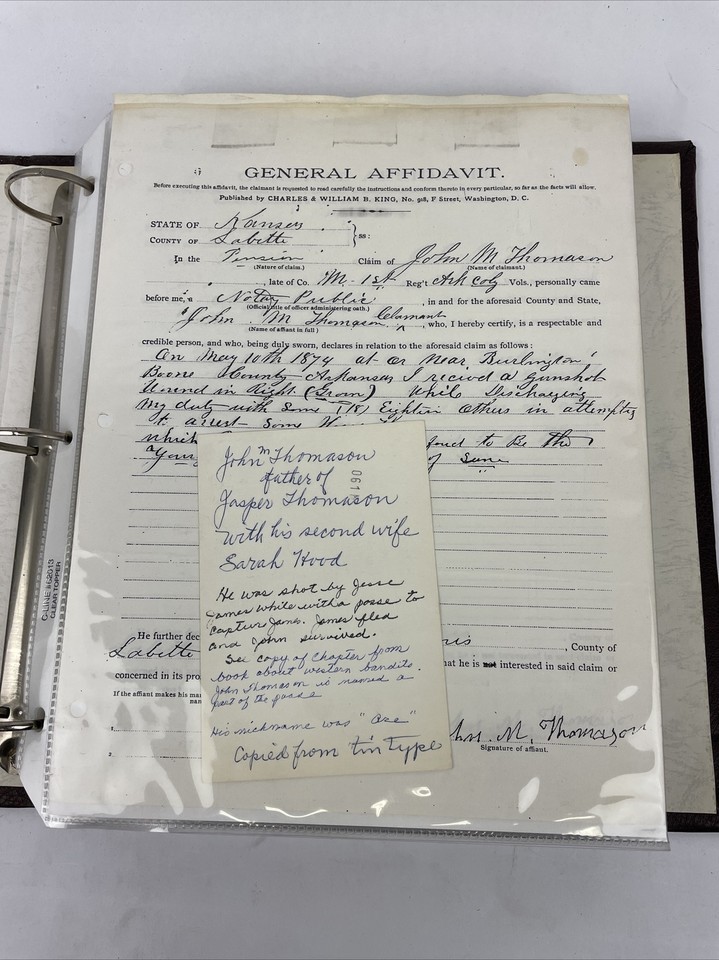 GENERAL AFFIDAVIT.
Before executing this affidavit, the claimant is requested to read carefully the instructions and conform thereto in every particular, so far as the facts will allow.
Published by CHARLES & WILLIAM B. KING, No. 918, F Street, Washington, D. C.
STATE OF Kansas
COUNTY OF Labette } ss:
In the Pension Claim of John M Thomason
(Nature of claim.) (Name of claimant.)
, late of Co. "M" 1st Reg't Ark Col Vols., personally came
before me, a Notary Public , in and for the aforesaid County and State,
(Official title of officer administering oath.)
John M Thomason Claimant , who, I hereby certify, is a respectable and
(Name of affiant in full)
credible person, and who, being duly sworn, declares in relation to the aforesaid claim as follows:
On May 10th 1874 at or Near Burlington
Boone County Arkansas I recived a Gunshot
Wound in Right (Groin) While Discharging
my duty with Some (18) Eighteen others in attempting
to arrest Some
which to Be the
Youn of Same
John M Thomason
father of
Jasper Thomason
with his second wife
Sarah Hood
He was shot by Jesse
James while with a posse to
capture James. James fled
and John survived.
See copy of chapter from
book about western bandits.
John Thomason is named a
part of the posse
His nickname was "Ase"
Copied from tin type
061
He further dec
Labette , County of
concerned in its pro hat he is not interested in said claim or
If the affiant makes his mar
nam
1.
2.
hn. M. Thomason
Signature of affiant.
C-LINE #62013
CLEAR TOPPER